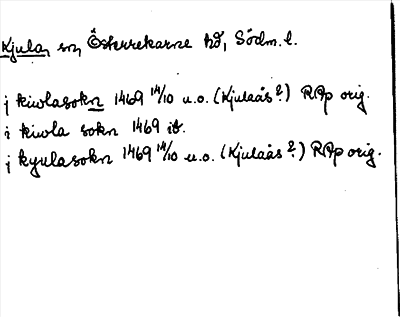 Kjula sn, Österrekarne hd, Södm. l.
j kiwlasokn 1469 14/10 u.o. (Kjulaås?) RAp orig.
i kiwla sokn 1469 ib.
j kyulasokn 1469 14/10 u.o. (Kjulaås?) RAp orig.